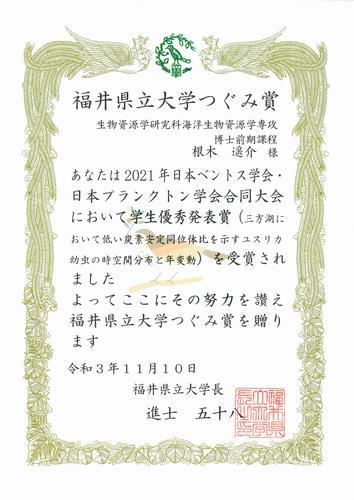 福井県立大学つぐみ賞
生物資源学研究科海洋生物資源学専攻
博士前期課程
根木 遥介 様
あなたは2021年日本ベントス学会・
日本プランクトン学会合同大会
において学生優秀発表賞（三方湖に
おいて低い炭素安定同位体比を示すユスリカ
幼虫の時空間分布と年変動）を受賞され
ました
よってここにその努力を讃え
福井県立大学つぐみ賞を贈り
ます
令和３年１１月１０日
福井県立大学長
進士 五十八